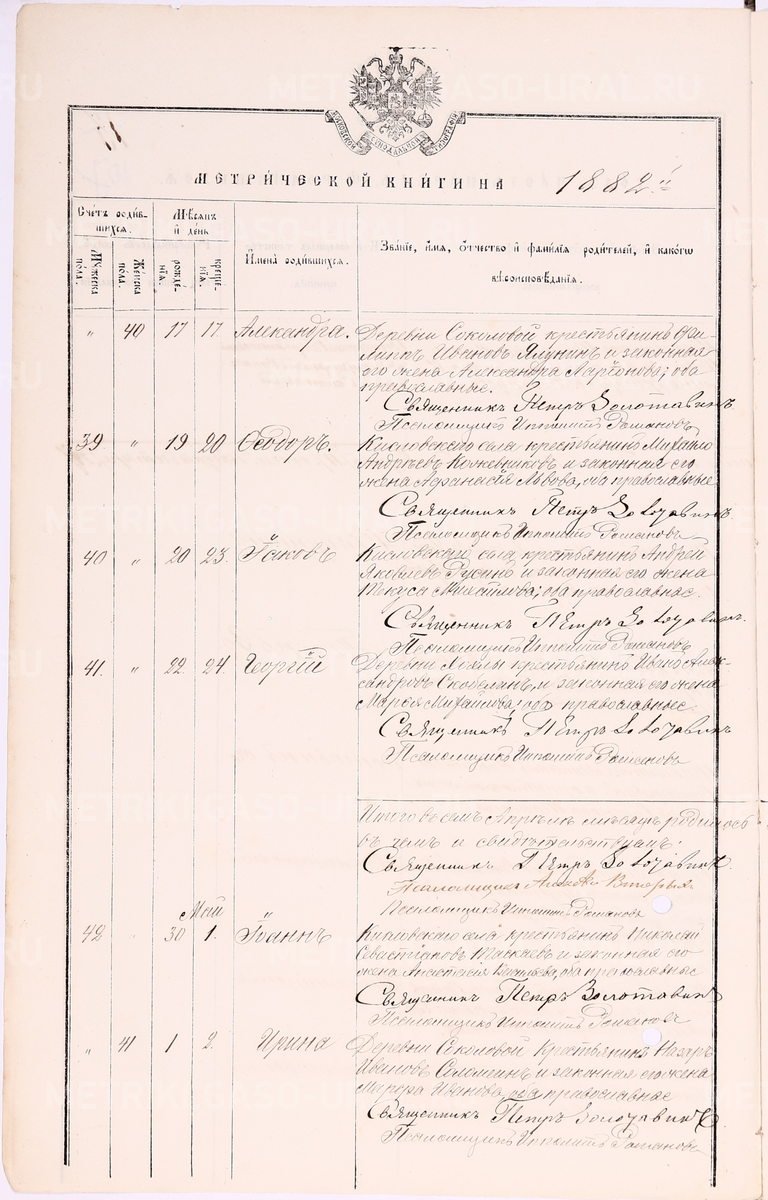 МЕТРИЧЕСКОЙ КНИГИ НА 1882й
Счетъ родив-
шихся.
Мужеска
пола.
Женска
пола.
Мѣсяцъ
и день
рожде-
нія.
креще-
нія.
Имена родившихся.
Званіе, имя, отчество и фамилія родителей, и какого
вѣроисповѣданія.
" 40 17 17. Александра. Деревни Соколовой крестьянинъ Фи-
липпъ Ивановъ и законная
его жена Александра Ларіонова; оба
православные.
Священникъ Петръ Золотавинъ
Псаломщикъ Ипполитъ
39 " 19 20 Ѳеодоръ. Кисловскаго села крестьянинъ Михаило
Андреевъ Кожевниковъ и законная его
жена Афанасія Львова, оба православные
Священникъ Петръ Золотавинъ.
Псаломщикъ Ипполитъ
40 " 20 23. Іаковъ Кисловскаго села крестьянинъ Андрей
Яковлевъ Русинъ и законная его жена
оба православные.
Священникъ Петръ Золотавинъ.
Псаломщикъ Ипполитъ
41. " 22. 24. Георгій Деревни крестьянинъ Иванъ Алек-
сандровъ и законная его жена
Марья Михайлова; оба православные
Священникъ Петръ Золотавинъ
Псаломщикъ Ипполитъ
Итого во семъ Апрѣлѣ мѣсяцѣ родилось
въ чемъ и свидѣтельствуемъ:
Священникъ Петръ Золотавинъ.
Псаломщикъ
Псаломщикъ Ипполитъ
Май
42 " 30 1. Іоаннъ Кисловскаго села крестьянинъ Николай
Севастіановъ и законная его
жена Анастасія Васильева, оба православные
Священникъ Петръ Золотавинъ
Псаломщикъ Ипполитъ
" 41 1 2. Ирина Деревни Соколовой Крестьянинъ Назаръ
Ивановъ и законная его жена
Ивановна, оба православные
Священникъ Петръ Золотавинъ
Псаломщикъ Ипполитъ